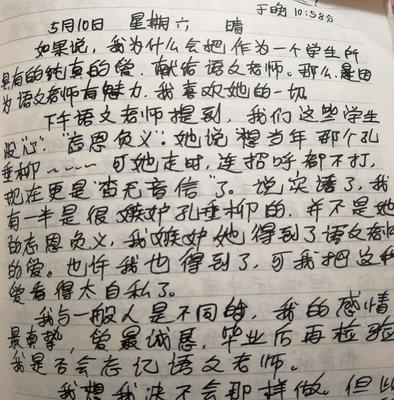 于晚 10:58分
5月10日 星期六 晴
如果说，我为什么会把作为一个学生所
具有的纯真的爱，献给语文老师。那么是因
为语文老师有魅力，我喜欢她的一切
下午语文老师提到，我们这些学生
没"心"，"忘恩负义"。她说想当年那个孔
垂柳~~~~可她走时，连招呼都不打，
现在更是"杳无音信"了。说实话了，我
有一半是很嫉妒孔垂柳的，并不是她
的忘恩负义，我嫉妒她得到了语文老师
的爱。也许我也得到了，可我把这种
爱看得太自私了。
我与一般人是不同的，我的感情
最真挚，爱最诚恳，毕业后再检验
我是否会忘记语文老师。
我想我决不会那样做。但